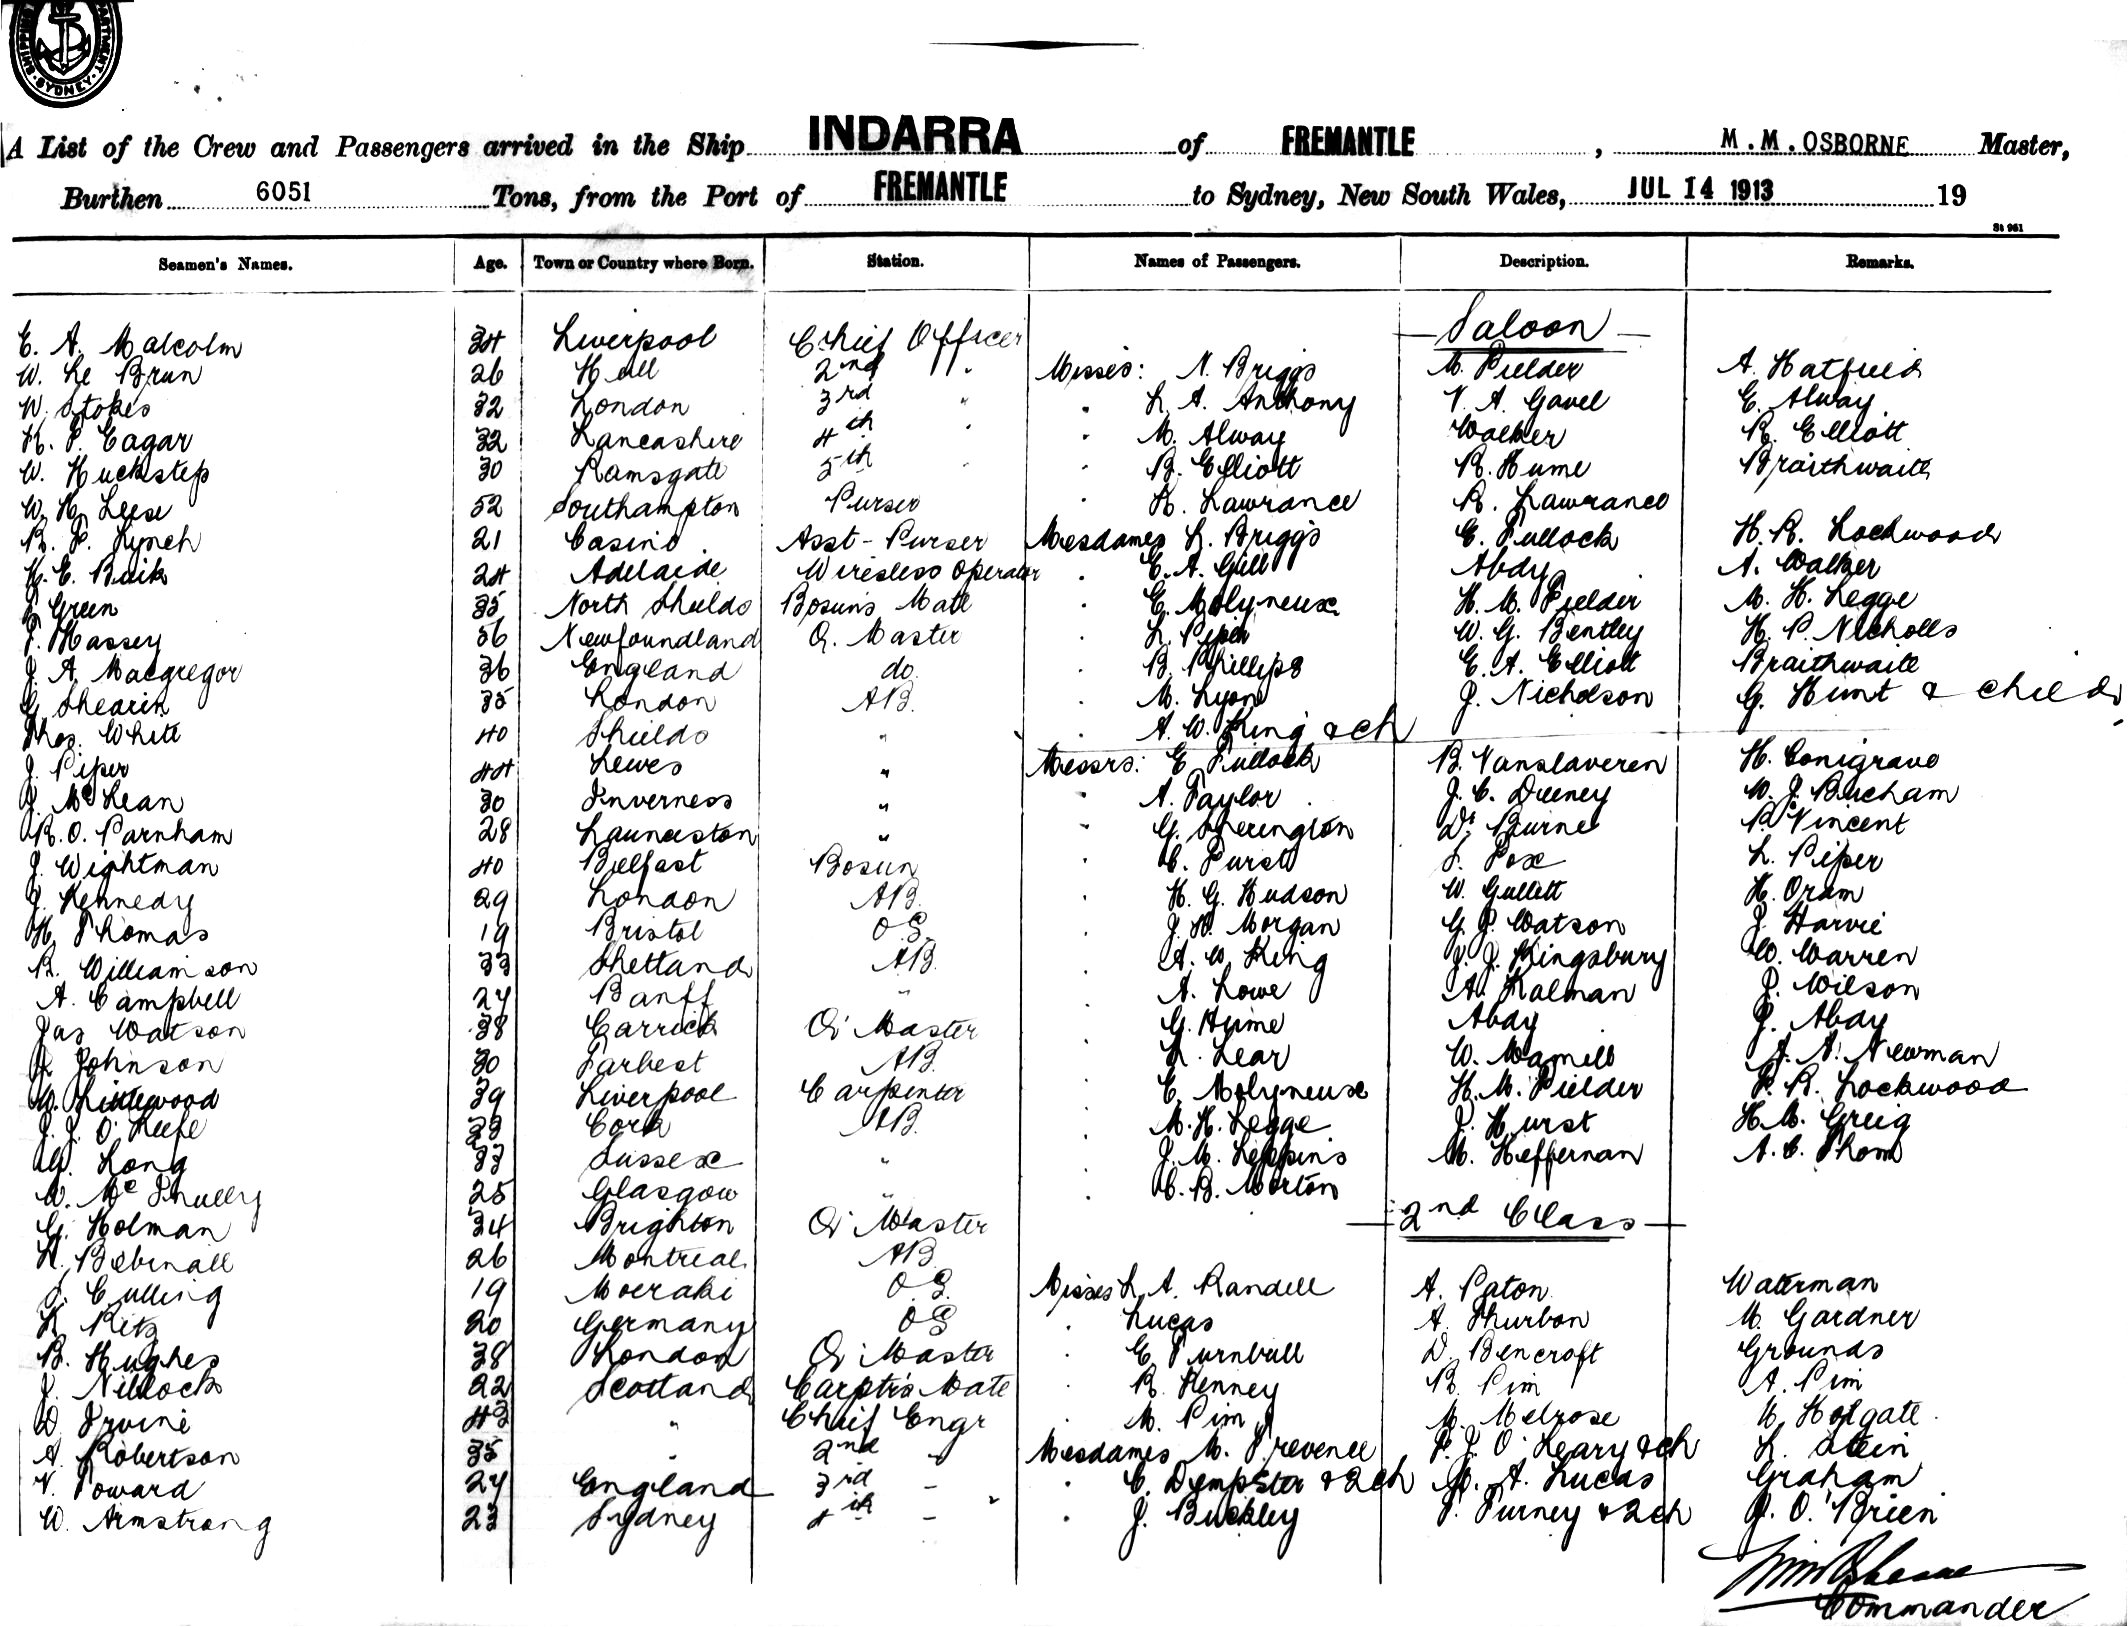 SHIPPING DEPARTMENT. SYDNEY.
A List of the Crew and Passengers arrived in the Ship INDARRA of FREMANTLE, M.M. OSBORNE Master,
Burthen 6051 Tons, from the Port of FREMANTLE to Sydney, New South Wales, JUL 14 1913 19
St 961
Seamen's Names. Age. Town or Country where Born. Station. Names of Passengers. Description. Remarks.
Saloon
E. A. Malcolm 34 Liverpool Chief Officer
W. Le Brun 26 Hull 2nd " Misses: N. Briggs M. Fielder A. Hatfield
W. Stokes 32 London 3rd " " L. A. Anthony V. A. Gavel E. Alway
H. P. Eagar 32 Lancashire 4th " " M. Alway Walker R. Elliott
W. Huckstep 30 Ramsgate 5th " " B. Elliott R. Hume Braithwaite
W. H. Leese 52 Southampton Purser " H. Lawrance R. Lawrance
R. P. Lynch 21 Casino Asst-Purser Mesdames L. Briggs E. Pullock H. R. Lockwood
H. E. Buik 24 Adelaide Wireless Operator " E. A. Gill Abdy A. Walker
Green 35 North Shields Bosun's Mate " E. Molyneux H. M. Fielder M. H. Legge
Massey 56 Newfoundland Q. Master " L. Piper W. G. Bentley H. P. Nicholls
J. A. Macgregor 36 England do " B. Phillips E. A. Elliott Braithwaite
G. Shearin 35 London AB. " M. Lyon J. Nicholson G. Hunt & child
Thos. White 40 Shields " " A. W. King & ch
J. Piper 44 Lewes " Messrs: E. Pullock B. Vanslaveren H. Conigrave
J. McLean 30 Inverness " " A. Taylor J. C. Deeney W. J. Bucham
R. O. Parnham 28 Launceston " " G. Sherington Dr. Burne P. Vincent
J. Wightman 40 Belfast Bosun " C. Furst Fox L. Piper
J. Kennedy 29 London AB. " H. G. Hudson W. Gullett H. Oram
H. Thomas 19 Bristol OS. " J. H. Morgan G. J. Watson J. Harvie
R. Williamson 33 Shetland AB. " A. W. King J. J. Kingsbury W. Warren
A. Campbell 27 Banff " " A. Lowe A. Kalman J. Wilson
Jas Watson 38 Carrick Qr Master " G. Hume Abdy J. Abdy
J. Johnson 30 Tarbest AB. " L. Lear W. A. Newman
Littlewood 39 Liverpool Carpenter " E. Molyneux H. M. Fielder F. R. Lockwood
J. J. O'Keefe 33 Cork AB. " M. H. Legge J. Hurst H. M. Greig
Long 33 Sussex " " J. M. Leppins M. Heffernan A. C. Thom
W. 25 Glasgow " " C. B. Morton
2nd Class
G. Holman 34 Brighton Qr Master
H. Bebinall 26 Montreal AB.
Culling 19 Moeraki O.S. Misses L. A. Randell A. Paton Waterman
Ritz 20 Germany OS " Lucas A. Thurbon M. Gardner
B. Hughes 38 London Qr Master " E. Turnbull D. Bencroft Grounds
J. Niblock 22 Scotland Carptr's Mate " R. Kenney R. Pim A. Pim
D. Irvine 43 " Chief Engr " M. Pim M. Melrose M. Holgate
A. Robertson 35 " 2nd " Mesdames M. Prevence F. J. O'Leary & ch L. Stein
V. Poward 27 England 3rd " " C. Dempster & 2 ch M. A. Lucas Graham
W. Armstrong 23 Sydney 4th " " J. Buckley T. Turney & 2 ch J. O'Brien
MM Osborne
Commander